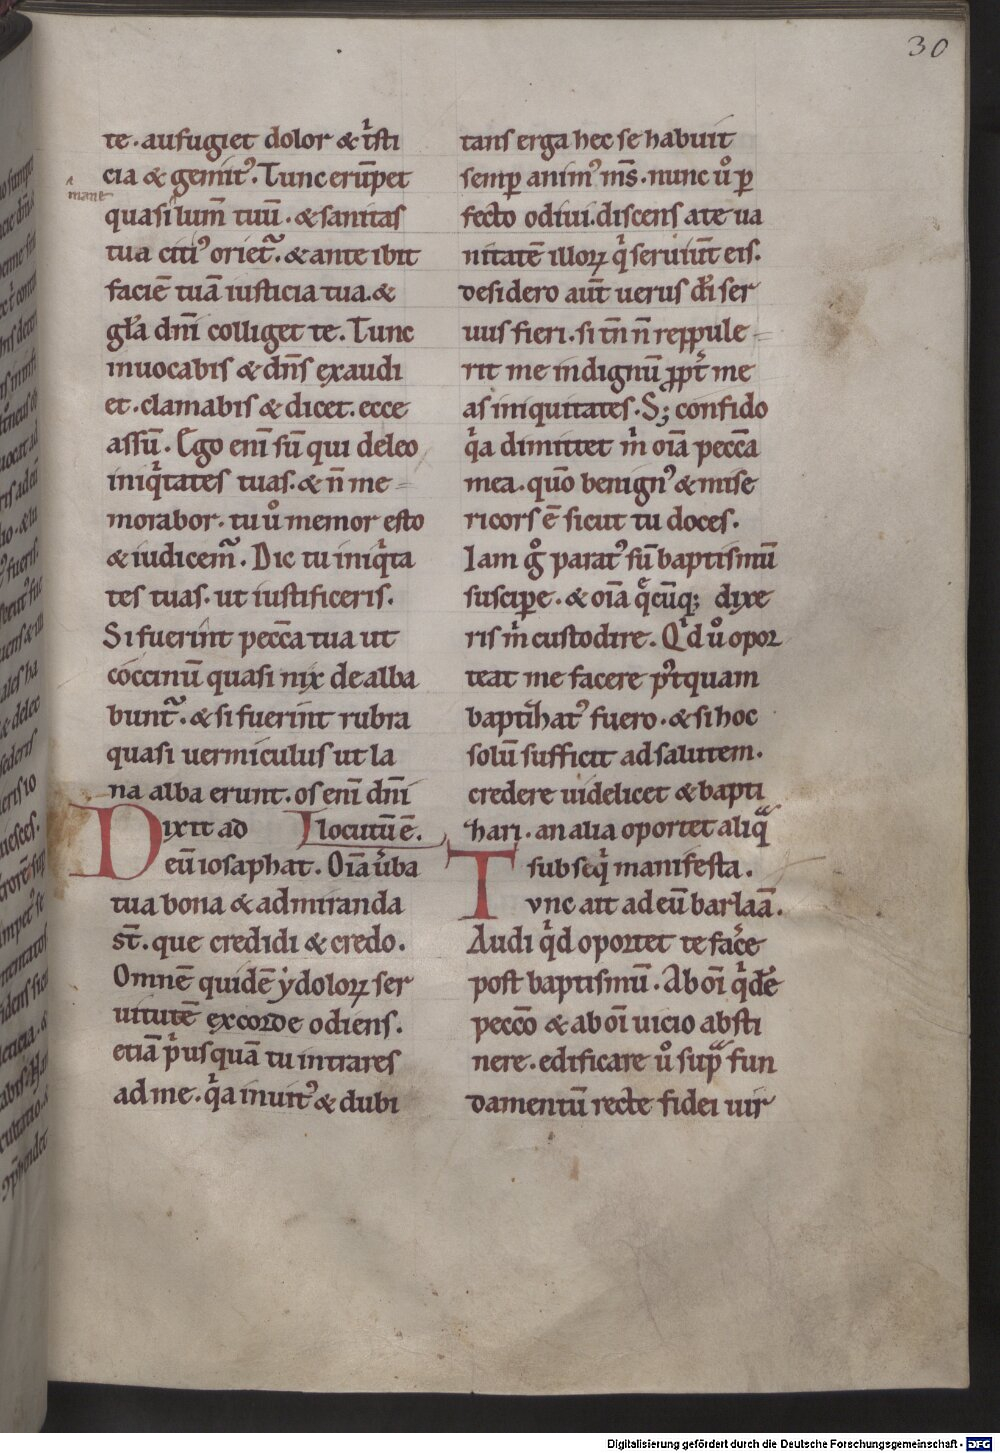 30
te. aufugiet dolor & tͥsti
cia & gemitꝰ. Tunc erūpet
mane
quasi lum̄ tuū. & sanitas
tua citiꝰ oriet᷑. & ante ibit
faciē tuā iusticia tua. &
gl̓a dn̄i colliget te. Tunc
inuocabis & dn̄s exaudi
et. clamabis & dicet. ecce
assū. Ego eni̅ sū qui deleo
iniqͥtates tuas. & n̄ me-
morabor. tu uͦ memor esto
& iudicem᷑. Dic tu iniqͥta
tes tuas. ut iustificeris.
Si fuerint pecc̄a tua ut
coccinū quasi nix dealba
bunt᷑. & si fuerint rubra
quasi uermiculus ut la
na alba erunt. os eni̅ dn̄i
Dixit ad locutū ē.
eū iosaphat. Oīa uͥba
tua bona & admiranda
st̄. que credidi & credo.
Omnē quidē ẏdoloꝝ ser
uitutē ex corde odiens.
etiā pͥusquā tu intrares
ad me. qͥa inuitꝰ & dubi
tans erga hec se habuit
semꝑ animꝰ m̄s. nunc uͦ ꝑ
fecto odiui. discens a te ua
nitatē illoꝝ qͥ seruiūt eis.
desidero aūt uerus di̓ ser
uus fieri. si tn̄ n̄ reppule-
rit me indignū ꝓpt᷑ me
as iniquitates. Sꝫ confido
qͥa dimittet m̄ oīa pecc̄a
mea. quō benignꝰ & mise
ricors ē sicut tu doces.
Iam gͦ paratꝰ sū baptismū
suscipe. & oīa q̄cūqꝫ dixe
ris m̄ custodire. Qͥd uͦ opor
teat me facere pꝰtquam
baptiҺatꝰ fuero. & si hoc
solū sufficit ad salutem.
credere uidelicet & bapti
Һari. an alia oportet aliqͣ
subseqͥ manifesta.
Tvnc ait ad eū barlaā.
Audi qͥd oportet te fac̓e
post baptismū. Ab oī qͥde̓
pecc̄o & ab oī uicio absti
nere. edificare uͦ supͣ fun
damentū recte fidei uir
Digitalisierung gefördert durch die Deutsche Forschungsgemeinschaft - DFG